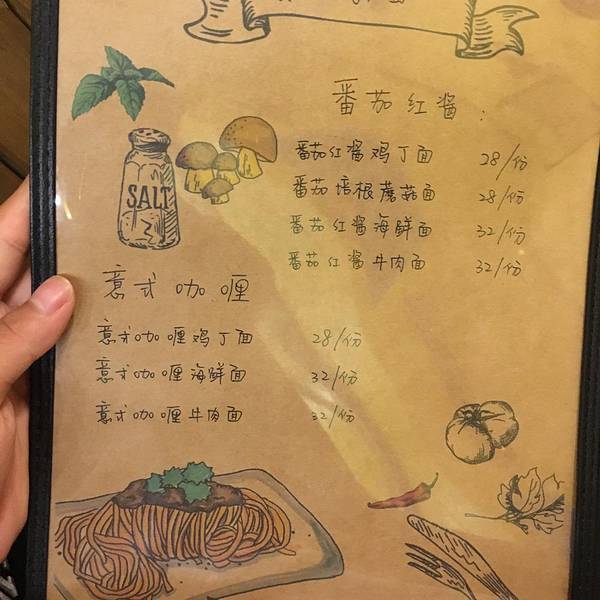 番茄红酱:
番茄红酱鸡丁面 28/份
番茄培根蘑菇面 28/份
番茄红酱海鲜面 32/份
番茄红酱牛肉面 32/份
SALT
意式咖喱
意式咖喱鸡丁面 28/份
意式咖喱海鲜面 32/份
意式咖喱牛肉面 32/份